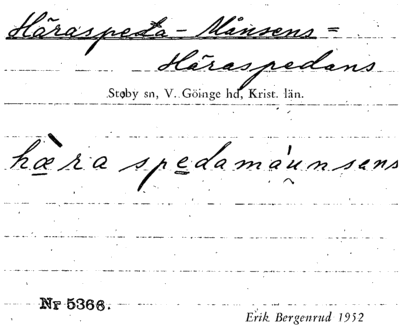 Häraspeda-Månsens =
Häraspedans
Stoby sn, V. Göinge hd, Krist. län.
hæ̀ra spedamáu̯nsens
Nr 5366.
Erik Bergenrud 1952